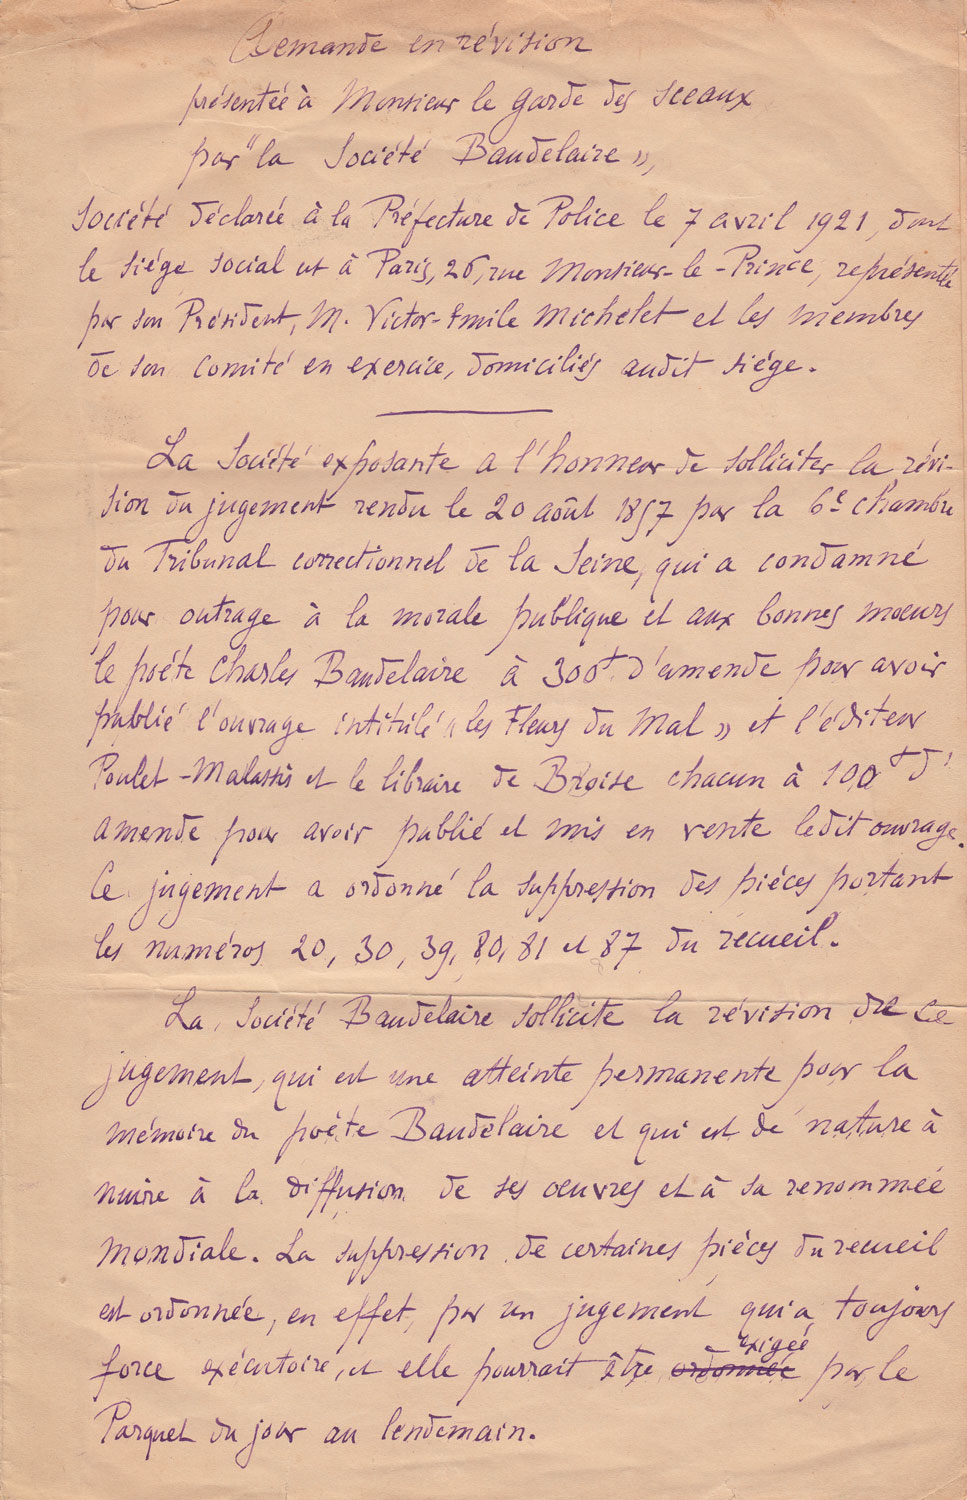 Demande en révision
présentée à Monsieur le Garde des Sceaux
par "la Société Baudelaire »,
Société déclarée à la Préfecture de Police le 7 avril 1921, dont
le siége social est à Paris, 26, rue Monsieur-le-Prince, représentée
par son Président, M. Victor-Emile Michelet et les membres
de son Comité en exercice, domiciliés audit siége.
La Société exposante a l'honneur de solliciter la révi-
sion du jugement rendu le 20 août 1857 par la 6e Chambre
du Tribunal correctionnel de la Seine, qui a condamné
pour outrage à la morale publique et aux bonnes moeurs
le poéte Charles Baudelaire à 300f d'amende pour avoir
publié l'ouvrage intitulé « les Fleurs du Mal » et l'éditeur
Poulet-Malassis et le libraire de Broise chacun à 100f d'
amende pour avoir publié et mis en vente ledit ouvrage.
Ce jugement a ordonné la suppression des piéces portant
les numéros 20, 30, 39, 80, 81 et 87 du recueil.
La Société Baudelaire sollicite la révision de ce
jugement, qui est une atteinte permanente pour la
mémoire du poéte Baudelaire et qui est de nature à
nuire à la diffusion de ses œuvres et à sa renommée
mondiale. La suppression de certaines piéces du recueil
est ordonnée, en effet, par un jugement qui a toujours
force exécutoire, et elle pourrait être ordonnée exigée par le
Parquet du jour au lendemain.